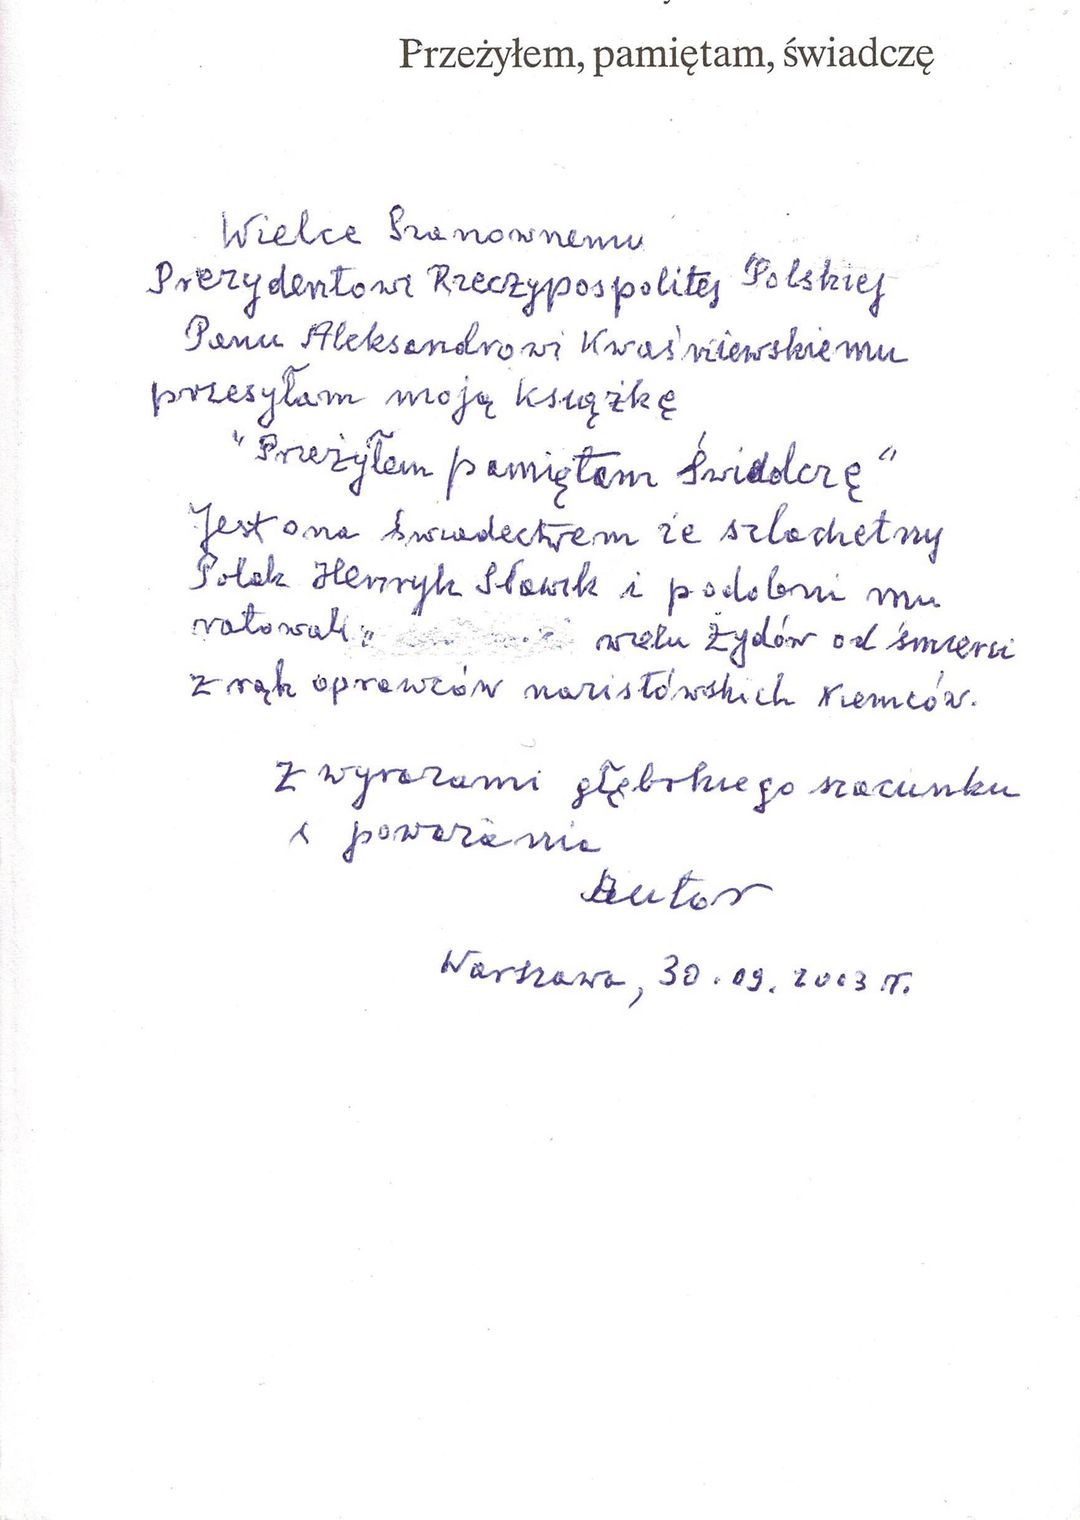 Przeżyłem, pamiętam, świadczę
Wielce Szanownemu
Prezydentowi Rzeczypospolitej Polskiej
Panu Aleksandrowi Kwaśniewskiemu
przesyłam moją książkę
"Przeżyłem pamiętam świadczę"
Jest ona świadectwem że szlachetny
Polak Henryk Sławik i podobni mu
ratowali wielu Żydów od śmierci
z rąk oprawców nazistówskich Niemców.
Z wyrazami głębokiego szacunku
i poważania
Autor
Warszawa, 30.09.2003 r.